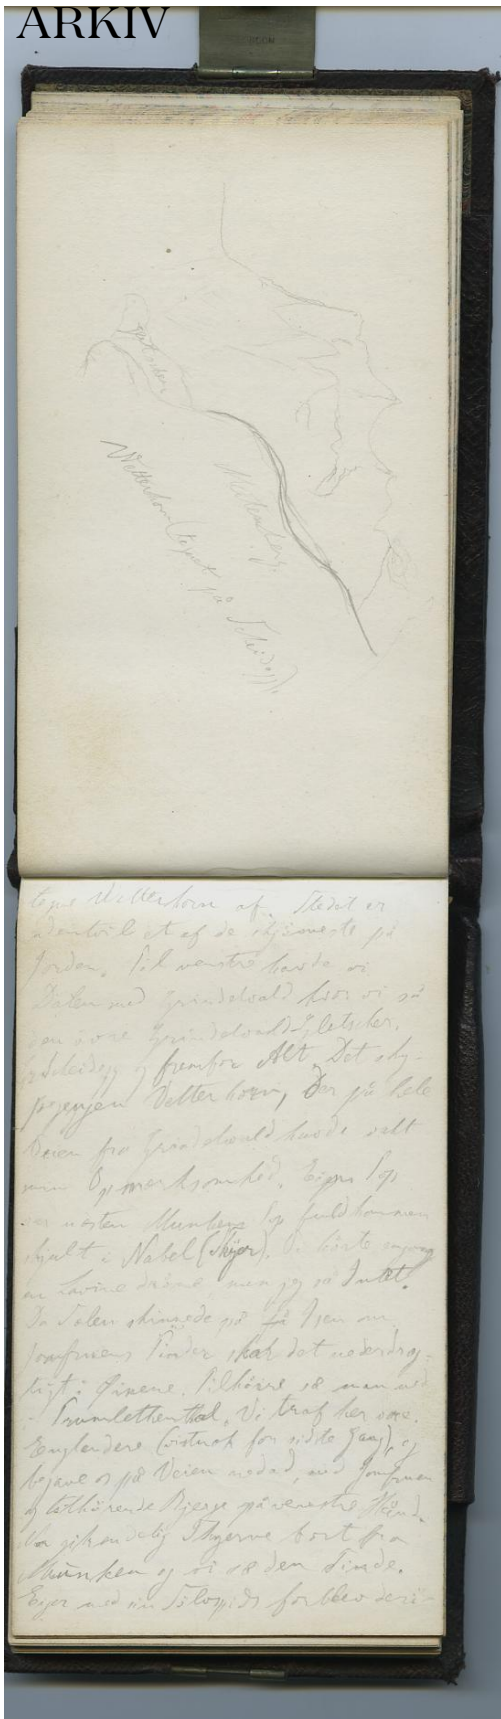 ARKIV
Gletscher
Mettenberg.
Wetterhorn (tegnet på Scheidegg).
tegne Wetterhorn af. Stedet er
udentvivl et af de skjönneste på
Jorden. Til venstre havde vi
Dalen med Grindelwald hvor vi så
den övre Grindelwald Gletscher,
Scheidegg og fremfor Alt Det
Wetterhorn, Der på hele
Veien fra Grindelwald havde valt
min Opmerksomhed. Eigers Top
næsten Munkens Top fuldkommen
skjult i Nabel (Skyer). Vi hörte engang
en Lavine dröne men jeg så Intet.
Da Solen skinnede på Is Isen om
Jomfruens Tinder skar det
i Öinene. Tilhöire så man ned
Trumlethenthal. Vi traf her vore
Englendere (vistnok for sidste Gang), og
begave os på Veien nedad, med Jomfruen
og tilhörende Bjerge på venstre Hånd.
Nu gik endelig Skyerne bort fra
Munken og vi så den Tinde.
Eiger med sin forblev